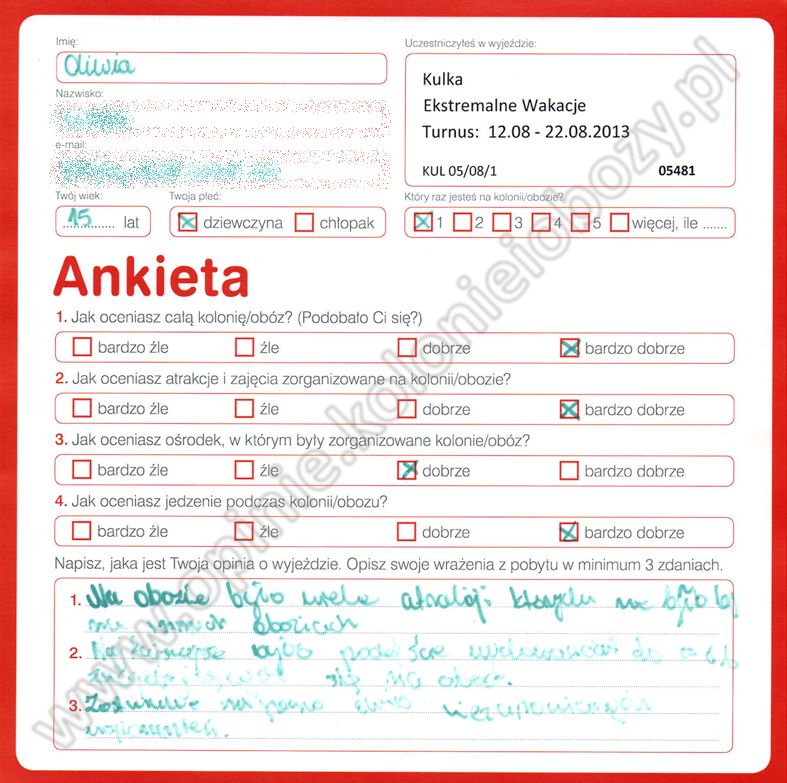 Imię:
Oliwia
Uczestniczyłeś w wyjeździe:
Kulka
Ekstremalne Wakacje
Turnus: 12.08 - 22.08.2013
KUL 05/08/1 05481
Nazwisko:
e-mail:
Twój wiek:
15 lat
Twoja płeć:
dziewczyna chłopak
Który raz jesteś na kolonii/obozie?
1 2 3 4 5 więcej, ile .......
Ankieta
1. Jak oceniasz całą kolonię/obóz? (Podobało Ci się?)
bardzo źle źle dobrze bardzo dobrze
2. Jak oceniasz atrakcje i zajęcia zorganizowane na kolonii/obozie?
bardzo źle źle dobrze bardzo dobrze
3. Jak oceniasz ośrodek, w którym były zorganizowane kolonie/obóz?
bardzo źle źle dobrze bardzo dobrze
4. Jak oceniasz jedzenie podczas kolonii/obozu?
bardzo źle źle dobrze bardzo dobrze
Napisz, jaka jest Twoja opinia o wyjeździe. Opisz swoje wrażenia z pobytu w minimum 3 zdaniach.
1. Na obozie było wiele atrakcji których nie było by
na innych obozach
2. było podejście do
się na obozie.
3.
www.opinie.kolonieiobozy.pl